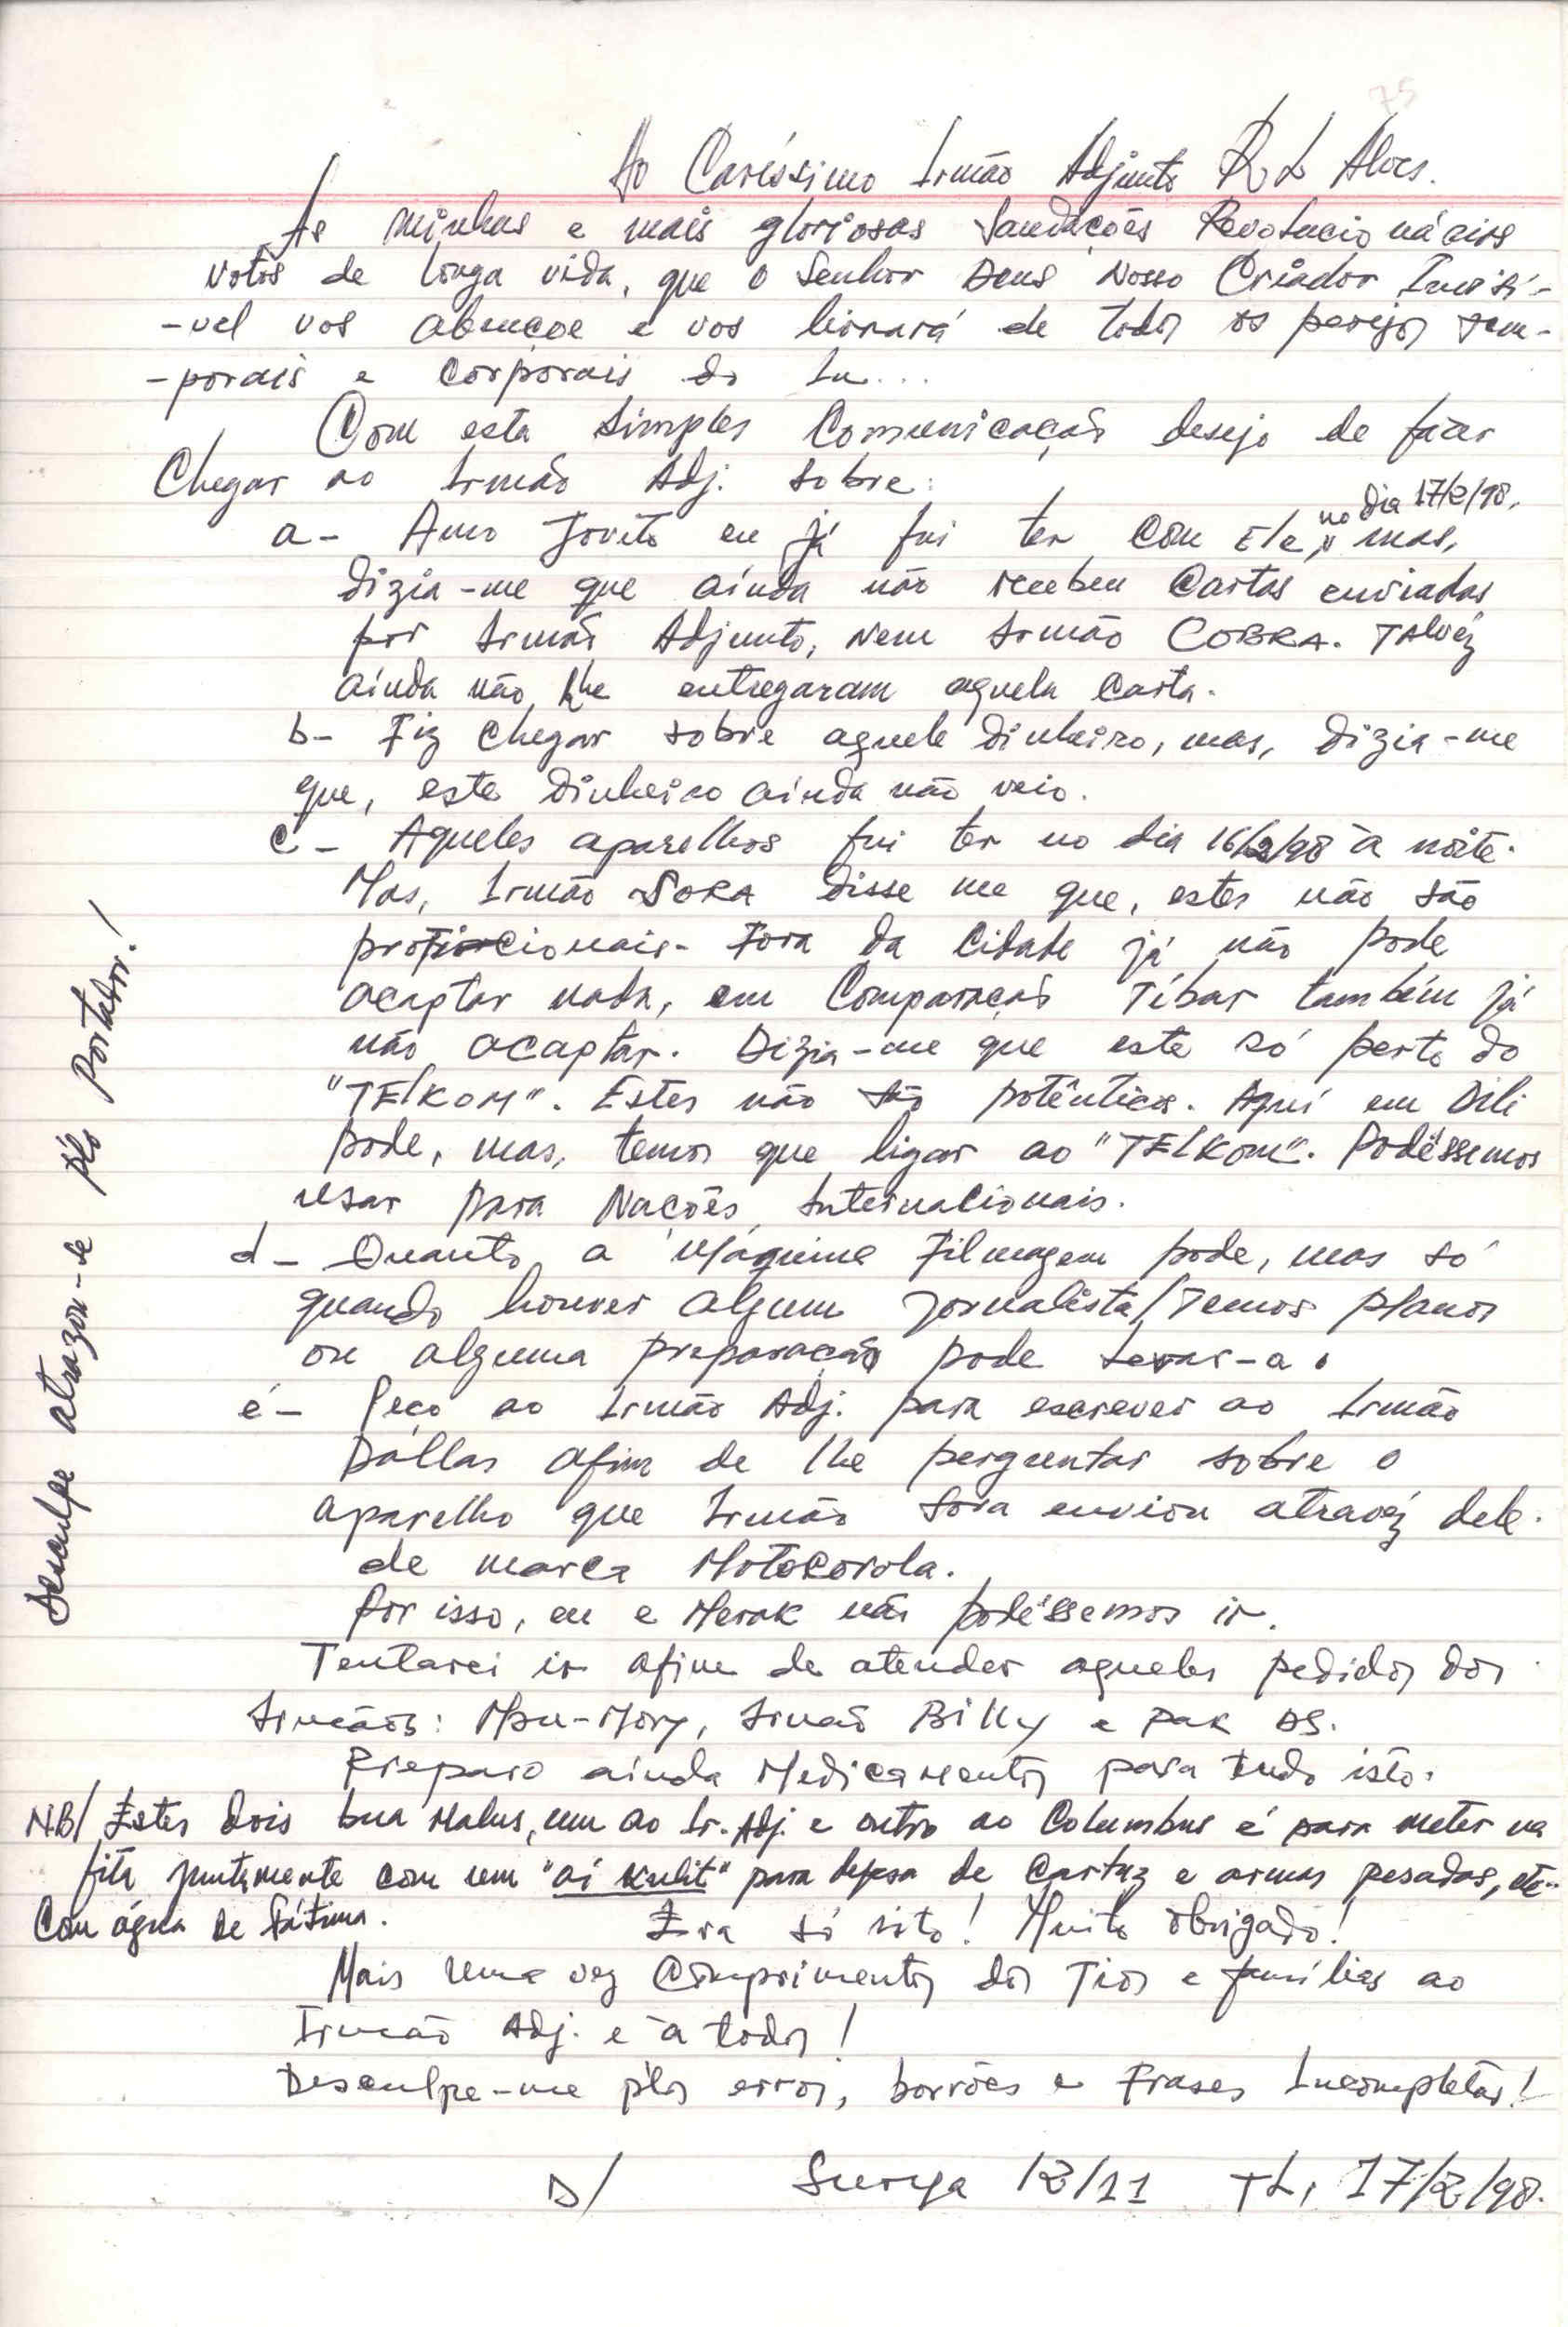 75
Ao Caríssimo Irmão Adjunto R. L Alves.
As minhas e mais gloriosas Saudações Revolucionários
votos de longa vida, que o Senhor Deus Nosso Criador Invisí-
-vel vos abençoe e vos livrará de todos os perigos tem-
-porais e corporais do In...
Com esta simples Comunicação desejo de fazer
Chegar ao Irmão Adj. sobre:
a- Amo Jovito eu já fui ter com Ele, no dia 17/2/98, mas,
dizia-me que ainda não recebeu Cartas enviadas
por Irmão Adjunto, nem Irmão COBRA. TAlvéz
ainda não lhe entregaram aquela Carta.
b- Fiz chegar sobre aquele dinheiro, mas, dizia-me
que, este dinheiro ainda não veio.
c- Aqueles aparelhos fui ter no dia 16/2/98 à noite.
Mas, Irmão SORA disse me que, estes não são
proficionais. Fora da Cidade já não pode
acaptar nada, em Comparação Tíbar também já
não acaptar. Dizia-me que este só perto do
"TElKOM". Estes não são potênticos. Aquí em Dili
pode, mas, temos que ligar ao "TElKom". Podêssemos
usar para Nações Internacionais.
d- Quanto a Máquina Filmagem pode, mas só
quando houver algum jornalista/Temos planos
ou alguma preparação pode levar-a.
é- Peço ao Irmão Adj. para escrever ao Irmão
Dállas afim de lhe perguntar sobre o
aparelho que Irmão Sora enviou atravéz dele.
de marca Motocorola.
Por isso, eu e Merak não podêssemos ir.
Tentarei ir afim de atender aqueles pedidos dos
Irmãos: Mau-Mory, Irmão Billy e pak AS.
Preparo ainda Medicamentos para tudo isto.
N.B/ Estes dois bua Malus, um ao Ir. Adj. e outro ao Columbus é para meter na
fita juntamente com um "ai kulit" para defesa de Cartuz e armas pesadas, etc..
Com água de Fátima.
Era só isto! Muito Obrigado!
Mais uma vez Comprimentos dos Tios e famílias ao
Irmão Adj. e à todos!
Desculpe-me p'los erros, borrões e Frases Incompletas!
D/ Surya 12/11 TL, 17/2/98.
Desculpe atrazou-se p'lo Portador!